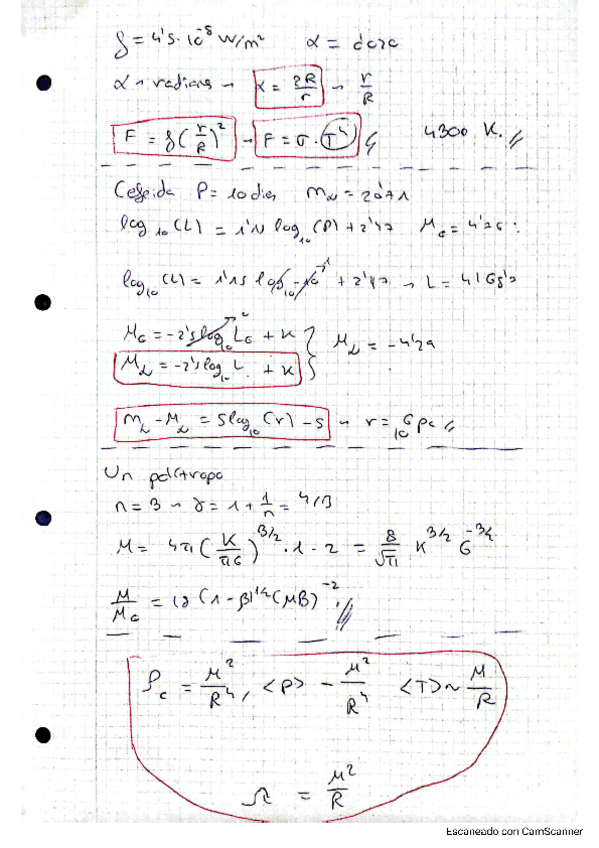 f = 4'5·10⁻⁸ W/m² α = dato
α → radians → α = 2R/r → r/R
F = f(r/R)² → F = σ·T⁴ 4300 K.
Cefeida P = 10 dies m = 20'71
log₁₀(L) = 1'15 log₁₀(P) + 2'47
log₁₀(L) = 1'15 log₁₀ 10 + 2'47 → L = 4168'7
M = -2'5 log₁₀ L + K
M = -2'5 log L + K
M = -4'29
m - M = 5 log₁₀(r) - 5 → r = 10⁶ pc
Un polítropo
n = 3 → γ = 1 + 1/n = 4/3
M = 4π(K/πG)^3/2 · 1 · 2 = 8/√π K^3/2 G^-3/2
M/M = 18 (1-β)^1/2 (μβ)^-2
P_c = M²/R⁴, <P> ~ M²/R⁴ <T> ~ M/R
Ω = M²/R
Escaneado con CamScanner